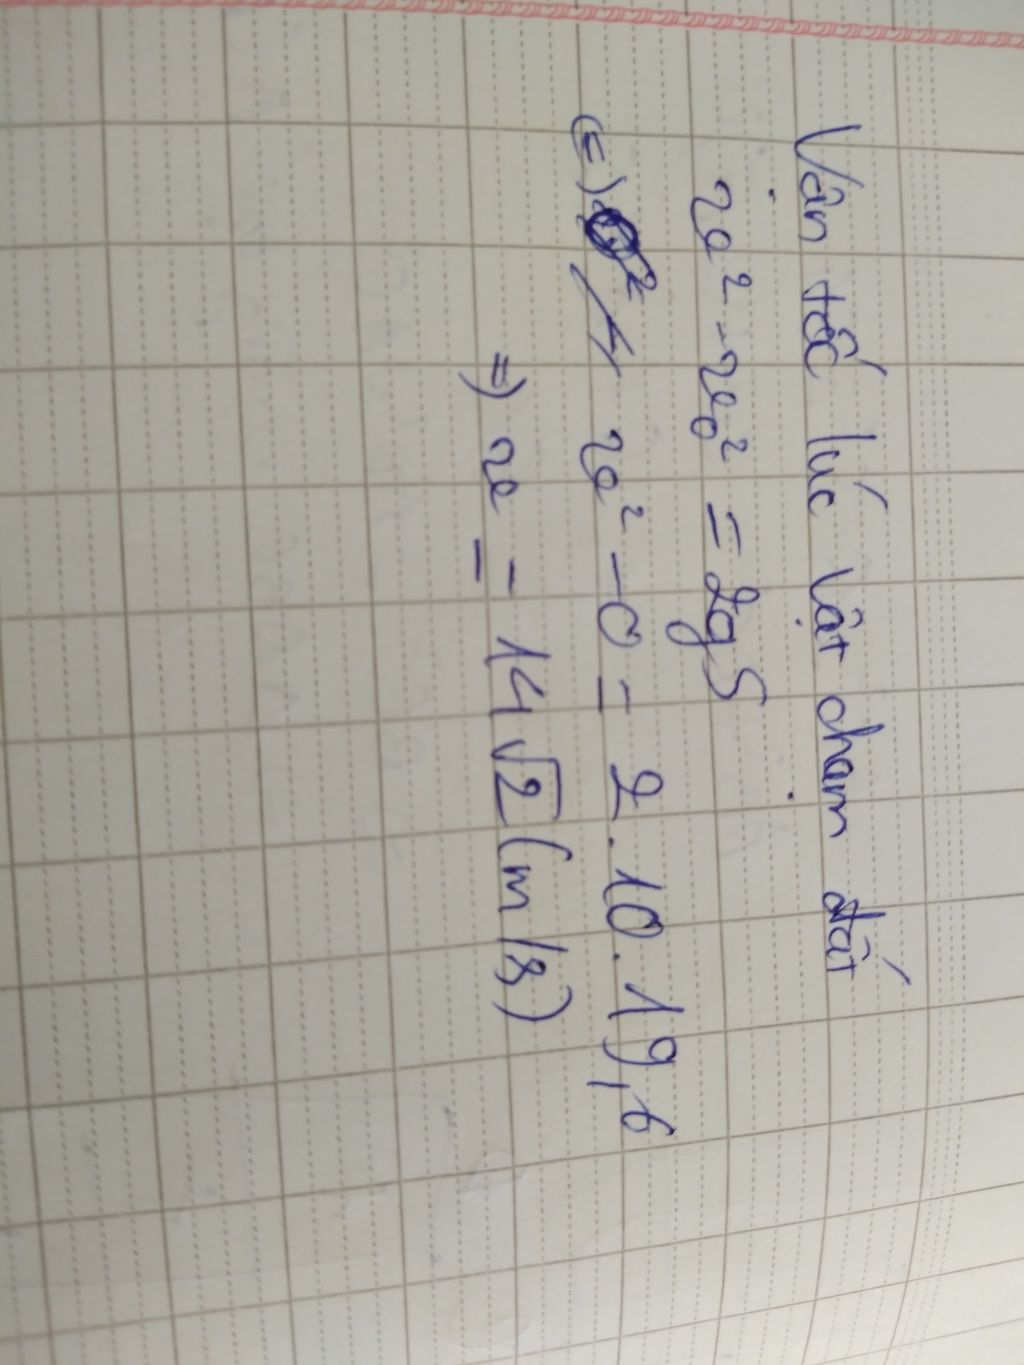 Vận tốc lúc vật chạm đất
v² - v₀² = 2gS
(=) v² - 0 = 2.10.19,6
=) v = 14√2 (m/s)